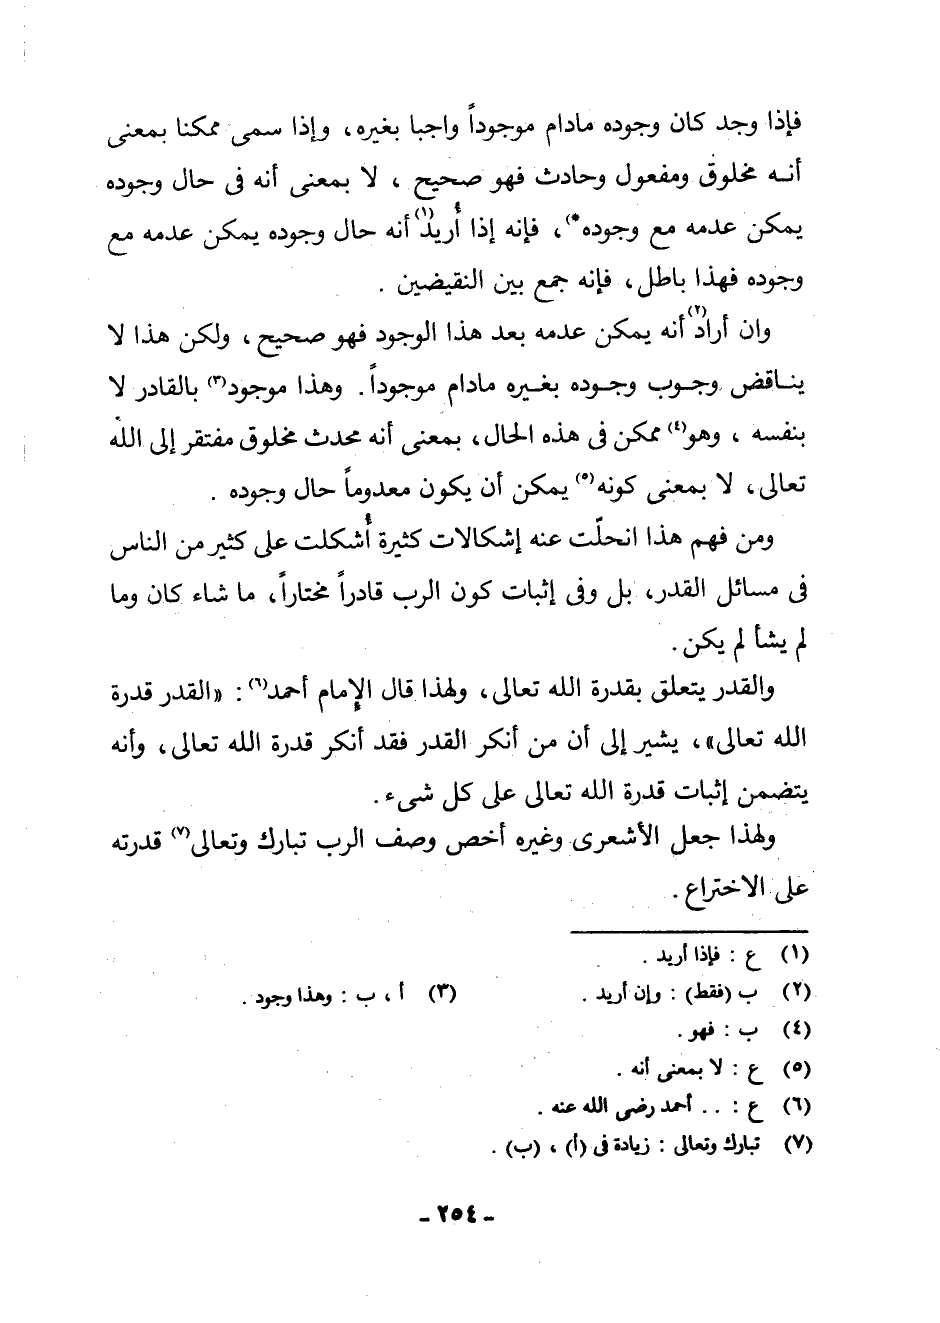 فإذا وجد كان وجوده مادام موجوداً واجبا بغيره، وإذا سمى ممكنا بمعنى
أنه مخلوق ومفعول وحادث فهو صحيح ، لا بمعنى أنه فى حال وجوده
يمكن عدمه مع وجوده*)، فإنه إذا أُريد(١) أنه حال وجوده يمكن عدمه مع
وجوده فهذا باطل، فإنه جمع بين النقيضين .
وان أراد(٢) أنه يمكن عدمه بعد هذا الوجود فهو صحيح، ولكن هذا لا
يناقض وجوب وجوده بغيره مادام موجوداً. وهذا موجود(٣) بالقادر لا
بنفسه ، وهو(٤) ممكن فى هذه الحال، بمعنى أنه محدث مخلوق مفتقر إلى الله
تعالى، لا بمعنى كونه(٥) يمكن أن يكون معدوماً حال وجوده .
ومن فهم هذا انحلّت عنه إشكالات كثيرة أُشكلت على كثير من الناس
فى مسائل القدر، بل وفى إثبات كون الرب قادراً مختاراً، ما شاء كان وما
لم يشأ لم يكن.
والقدر يتعلق بقدرة الله تعالى، ولهذا قال الإمام أحمد(٦): «القدر قدرة
الله تعالى»، يشير إلى أن من أنكر القدر فقد أنكر قدرة الله تعالى، وأنه
يتضمن إثبات قدرة الله تعالى على كل شىء.
ولهذا جعل الأشعرى وغيره أخص وصف الرب تبارك وتعالى(٧) قدرته
على الاختراع.
(١) ع : فإذا أريد .
(٢) ب (فقط) : وإن أريد . (٣) أ ، ب : وهذا وجود .
(٤) ب : فهو .
(٥) ع : لا بمعنى أنه .
(٦) ع : . . أحمد رضى الله عنه .
(٧) تبارك وتعالى : زيادة فى (أ) ، (ب) .
- ٢٥٤ -